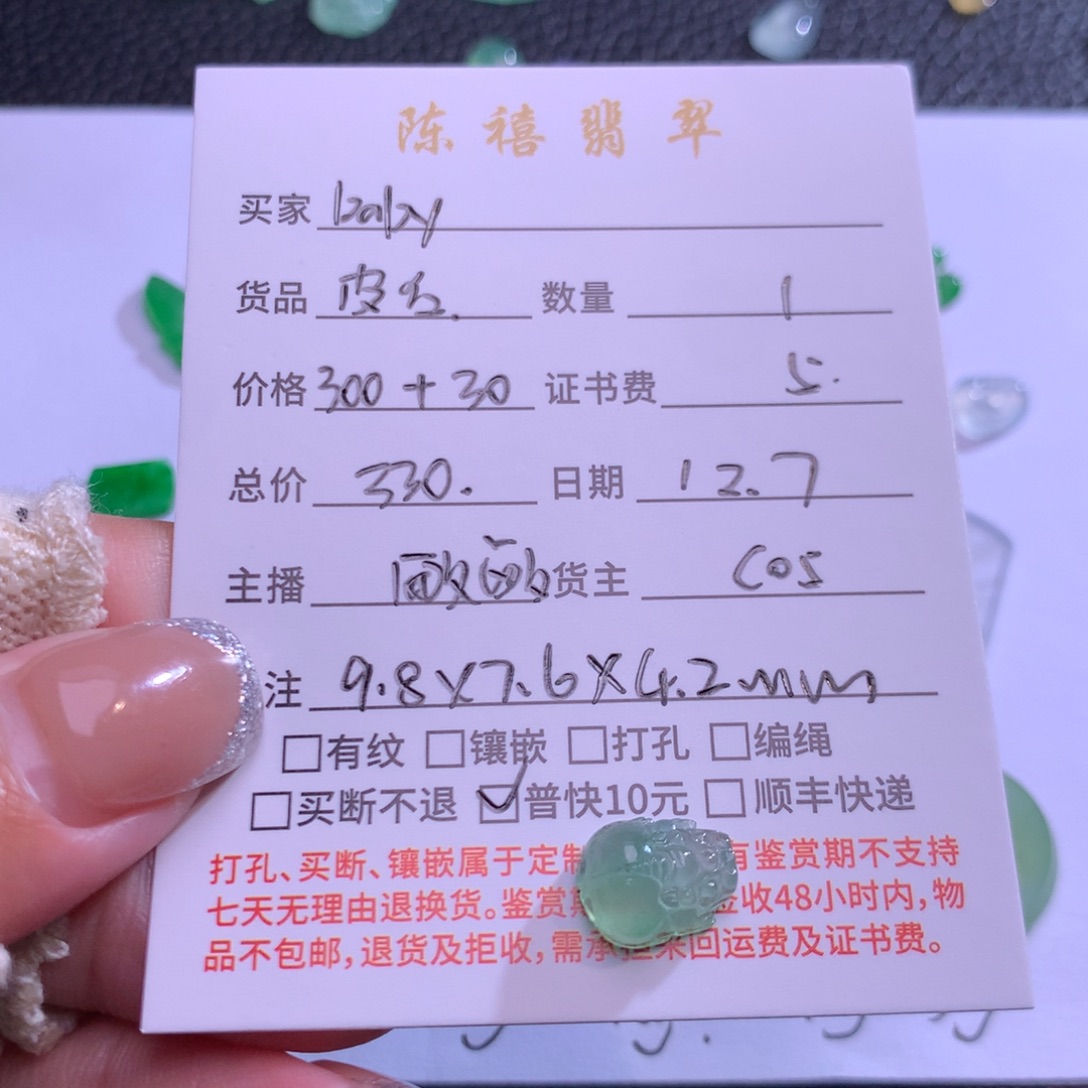 陈禧翡翠
买家 baby
货品 皮丘. 数量 1
价格 300+30 证书费 5.
总价 330. 日期 12.7
主播 货主 cos
注 9.8×7.6×4.2mm
□有纹 □镶嵌 □打孔 □编绳
□买断不退 ☑普快10元 □顺丰快递
打孔、买断、镶嵌属于定制 有鉴赏期不支持
七天无理由退换货。鉴赏期 签收48小时内，物
品不包邮，退货及拒收，需承担来回运费及证书费。